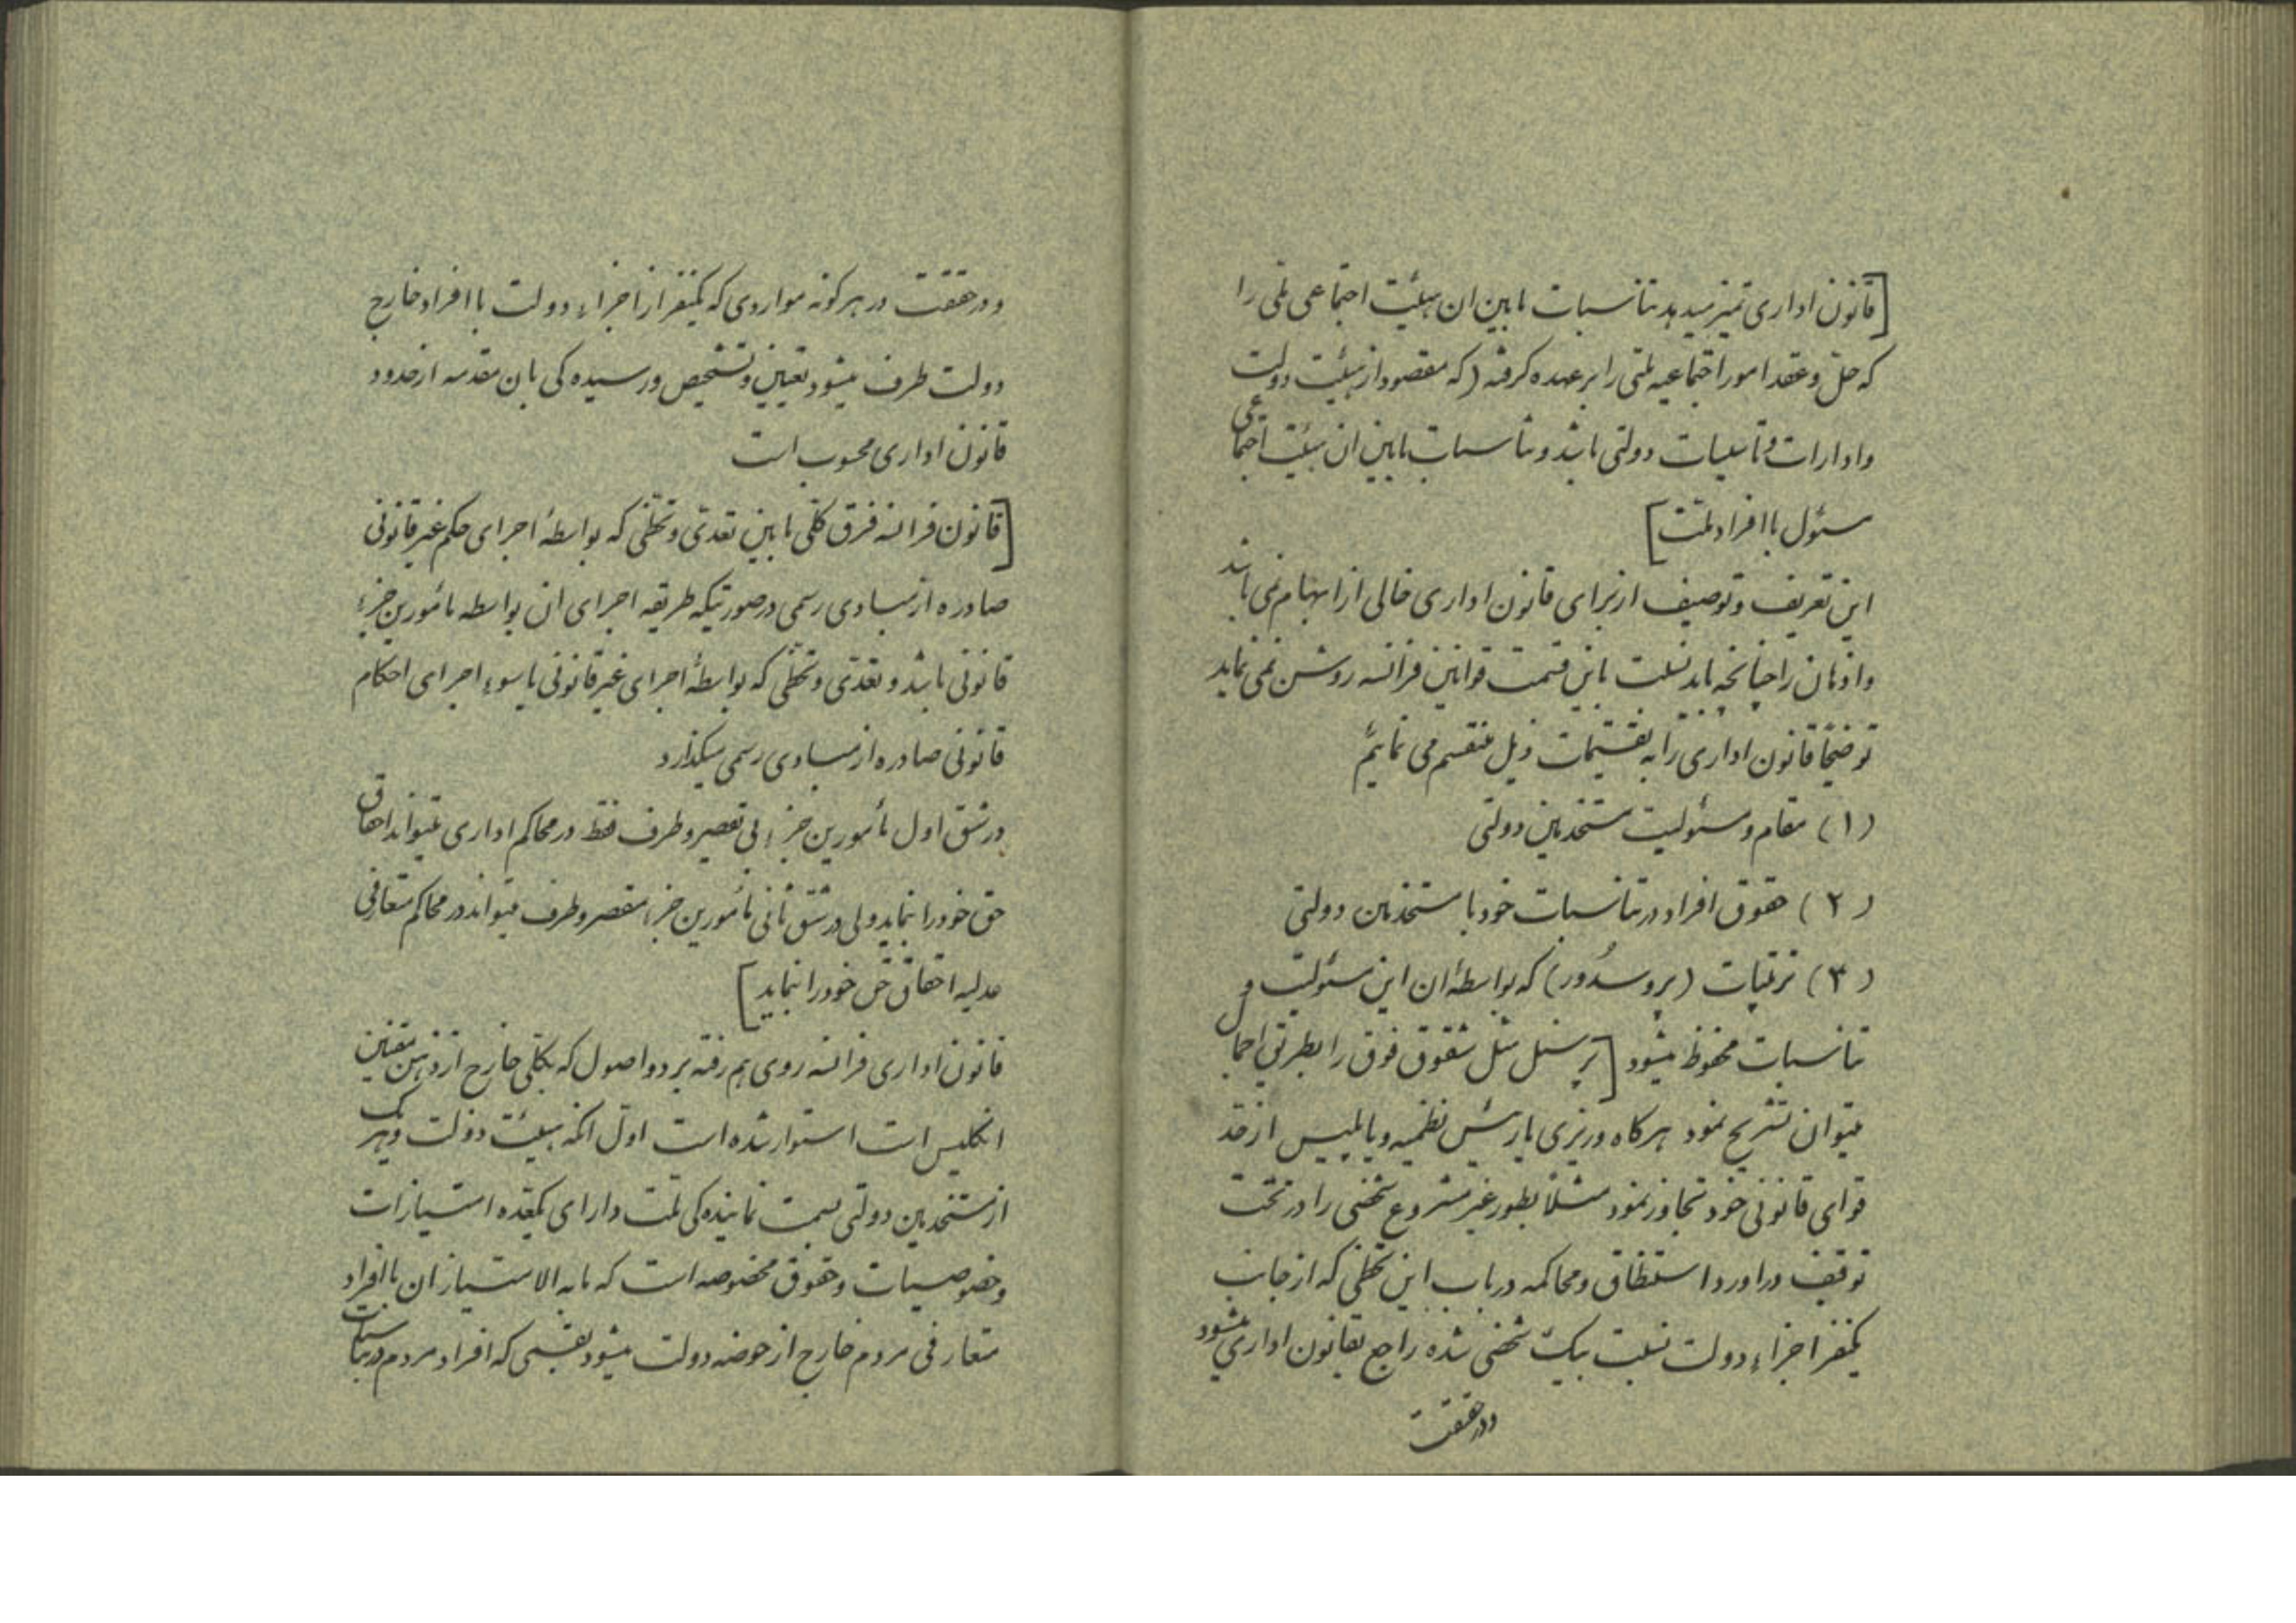 [قانون اداری تمیز میدهد تناسبات مابین ان هیئت اجتماعی ملی را
که حل و عقد امور اجتماعیه ملتی را بر عهده گرفته (که مقصود از هیئت دولت
و ادارات و تأسیسات دولتی باشد و تناسبات مابین ان هیئت اجتماعی
مسئول با افراد ملت]
این تعریف و توصیف از برای قانون اداری خالی از ابهام نمی باشد
و اذهان را چنانچه باید نسبت باین قسمت قوانین فرانسه روشن نمی نماید
توضیحاً قانون اداری را به تقسیمات ذیل منقسم می نمائیم
(۱) مقام و مسئولیت مستخدمین دولتی
(۲) حقوق افراد در تناسبات خود با مستخدمین دولتی
(۳) ترتیبات (پروسدور) که بواسطهٔ ان این مسئولیت و
تناسبات محفوظ میشود [برسبیل مثل شقوق فوق را بطریق اجمال
میتوان تشریح نمود هرگاه وزیری یا رئیس نظمیه و یا پلیس از حد
قوای قانونی خود تجاوز نمود مثلاً بطور غیر مشروع شخصی را در تحت
توقیف دراورد استنطاق و محاکمه در باب این تخطی که از جانب
یکنفر اجزاء دولت نسبت بیک شخصی شده راجع بقانون اداری میشود
ودرحقیقت
ودرحقیقت در هر گونه مواردی که یکنفر از اجزاء دولت با افراد خارج
دولت طرف میشود تعیین و تشخیص و رسیده گی بان مقدمه از حدود
قانون اداری محسوب است
[قانون فرانسه فرق کلی مابین تعدی و تخطی که بواسطهٔ اجرای حکم غیر قانونی
صادره از مبادی رسمی درصورتیکه طریقه اجرای ان بواسطه مأمورین جزء
قانونی باشد و تعدی و تخطی که بواسطهٔ اجرای غیر قانونی یا سوء اجرای احکام
قانونی صادره از مبادی رسمی میگذارد
در شق اول مأمورین جزء بی تقصیر و طرف فقط در محاکم اداری میتواند احقاق
حق خود را بنماید ولی در شق ثانی مأمورین جزء مقصر و طرف میتواند در محاکم متعارفی
عدلیه احقاق حق خود را بنماید]
قانون اداری فرانسه روی هم رفته بر دو اصول که بکلی خارج از ذهن مقننین
انگلیس است استوار شده است اول انکه هیئت دولت و هریک
از مستخدمین دولتی بسمت نماینده گی ملت دارای یکعده امتیازات
و خصوصیات و حقوق مخصوصه است که مابه الامتیاز ان با افراد
متعارفی مردم خارج از حوضه دولت میشود بقسمی که افراد مردم در تناسبات